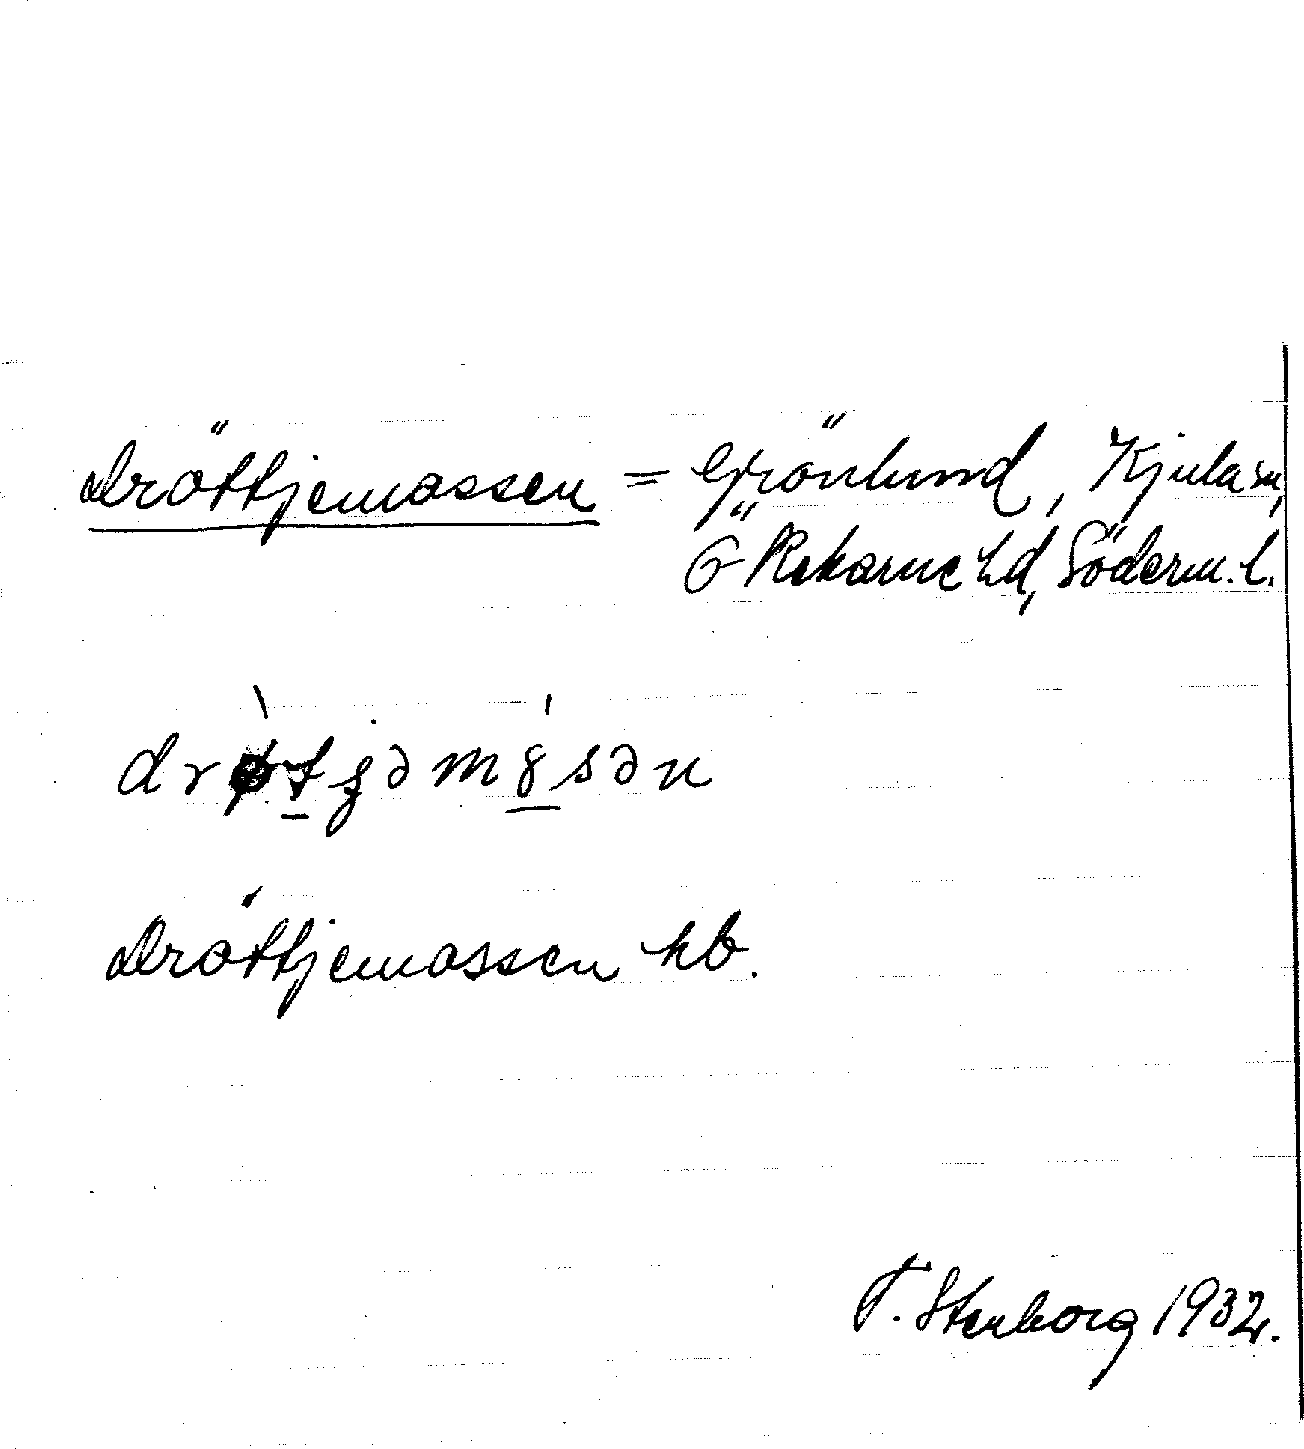 Dröttjemassen = Grönlund, Kjula sn,
Ö Rekarne hd, Söderm. l.
Dröttjemassen kb.
T. Stenborg 1932.